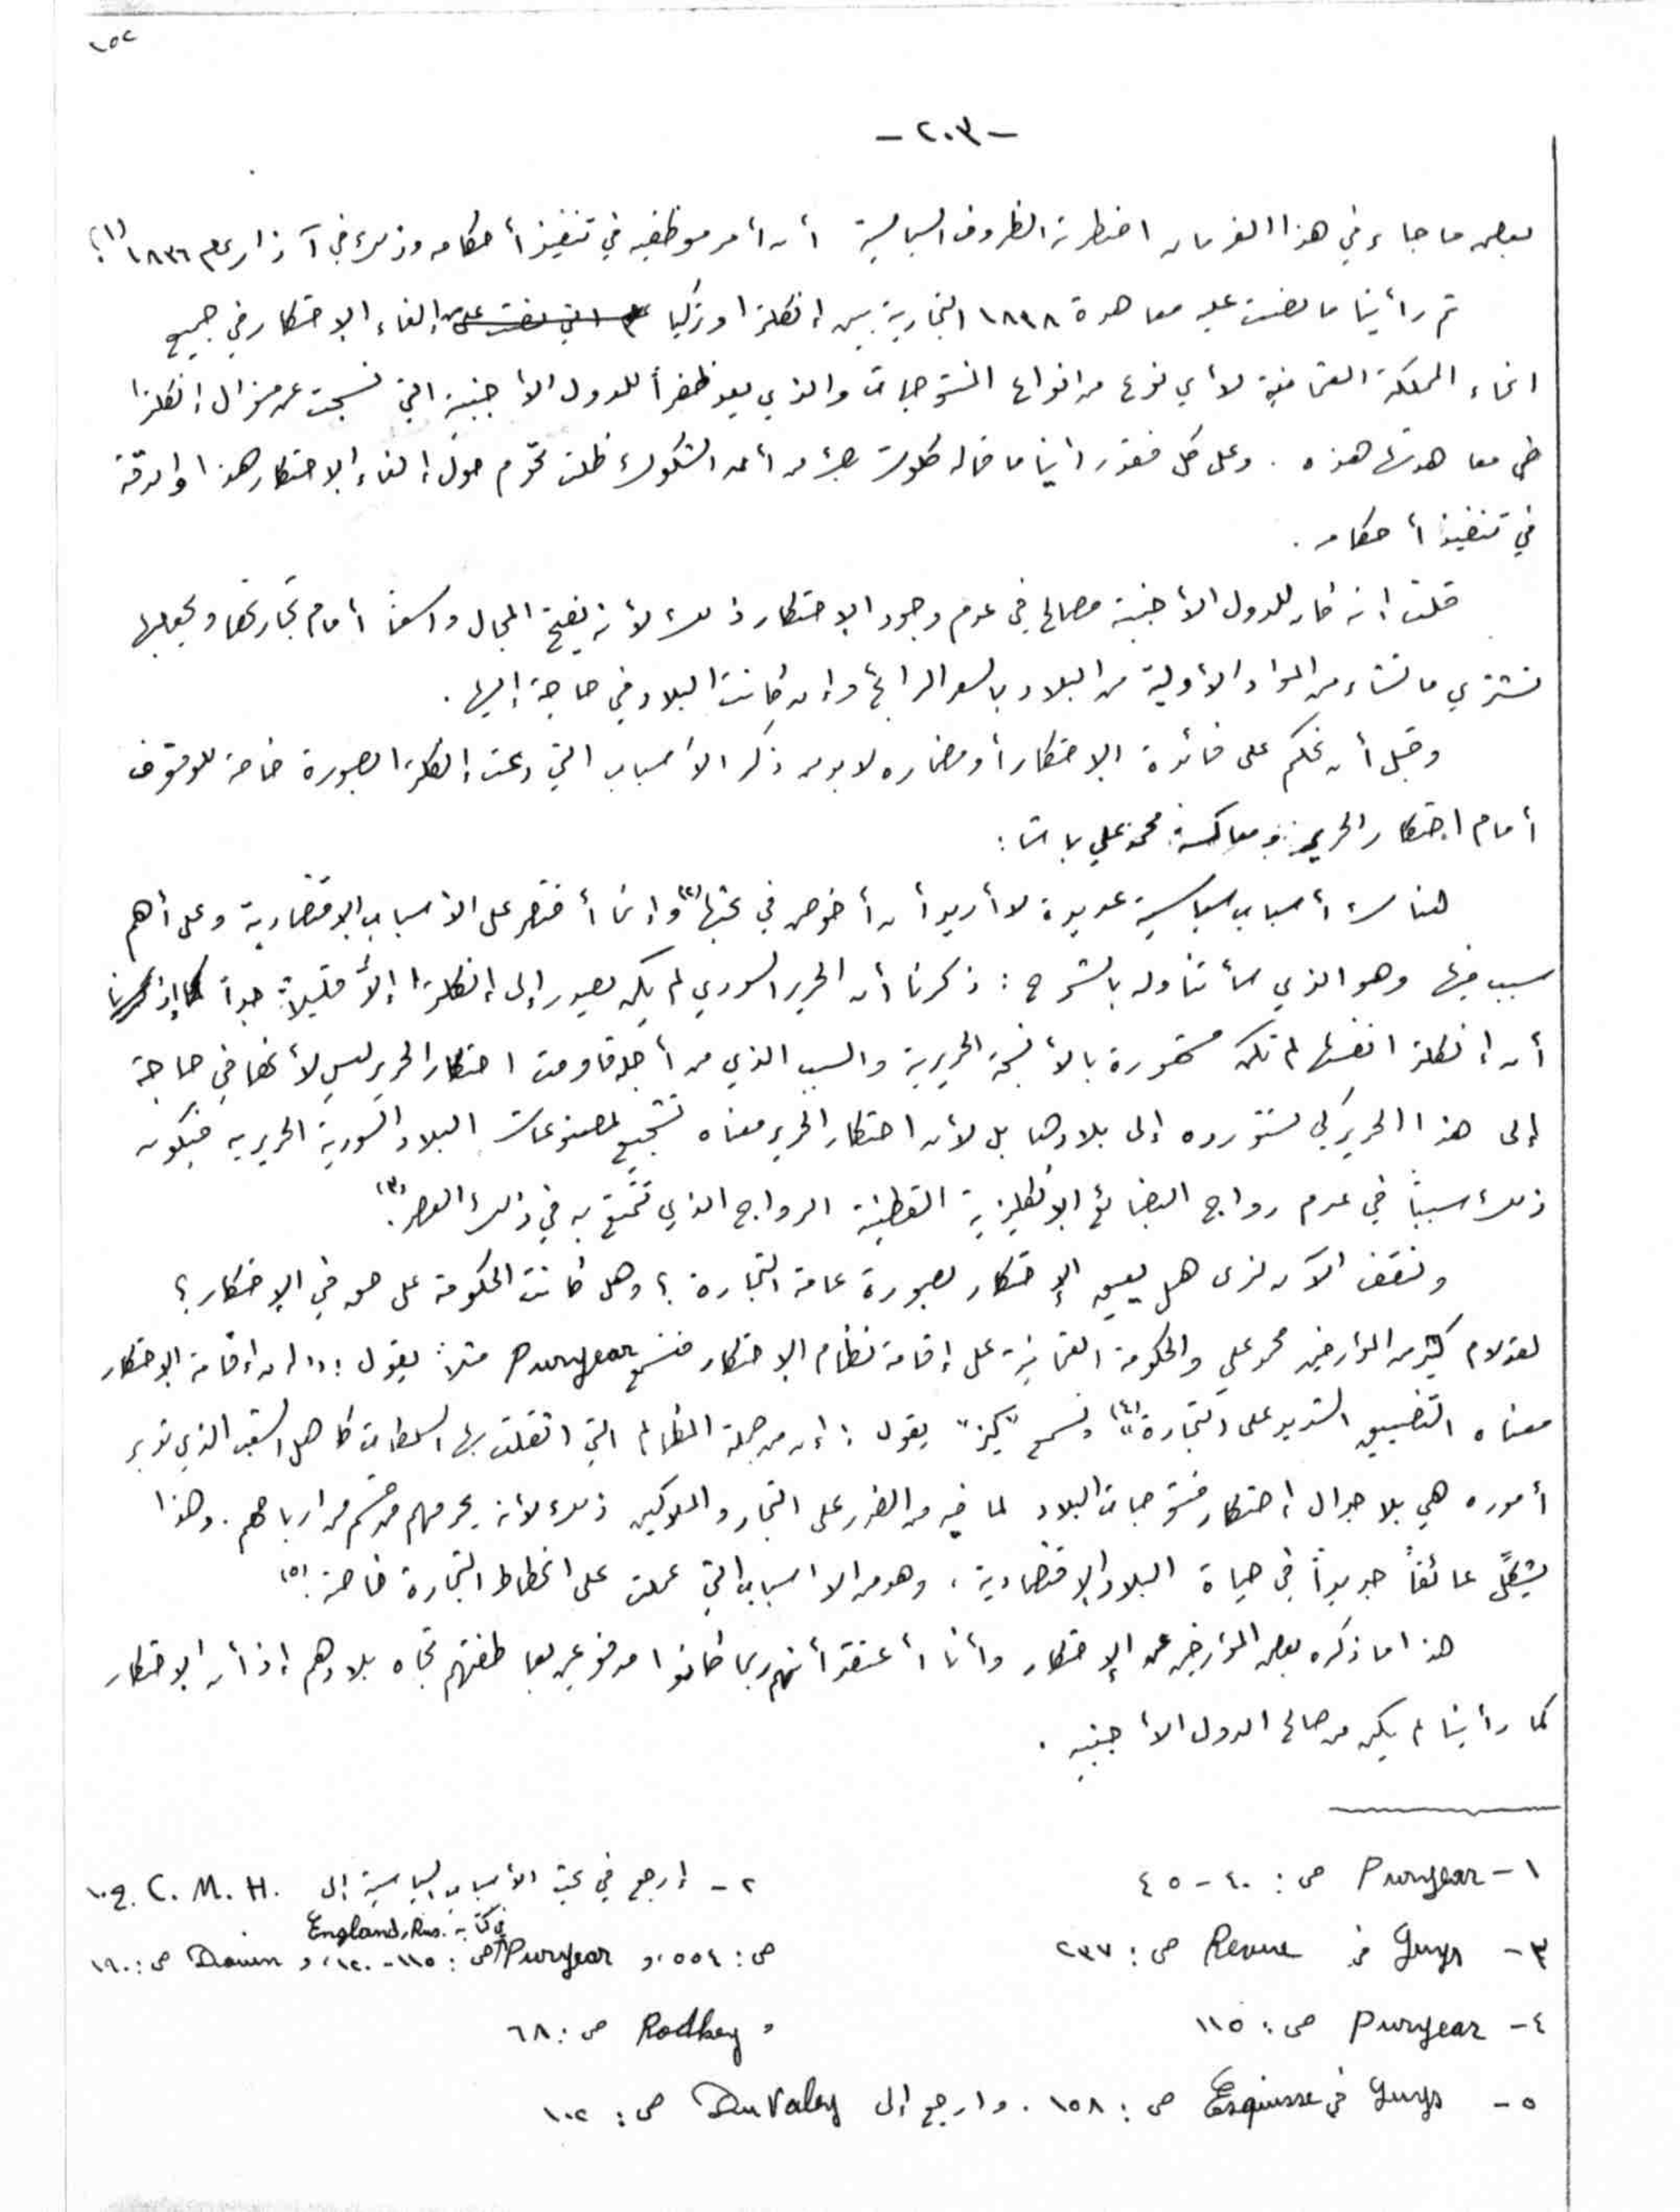 ١٥٢
- ٢٠٣ -
بعض ما جاء في هذا الفرمان اضطرته الظروف السياسية أن أمر موظفيه في تنفيذ أحكامه وذلك في آذار عام ١٨٣٦ (١).
ثم رأينا ما نصت عليه معاهدة ١٨٣٨ التجارية بين إنكلترا وتركيا من إلغاء الاحتكار في جميع
انحاء المملكة العثمانية لأي نوع من انواع المنتوجات والذي يعد ظفراً للدول الأجنبية التي نسجت على منوال إنكلترا
في معاهدتها هذه . وعلى كل فقد رأينا ما قاله كلوت بك من أن الشكوك ظلت تحوم حول إلغاء الاحتكار هذا والدقة
في تنفيذ أحكامه .
قلت إنه كان للدول الأجنبية مصالح في عدم وجود الاحتكار ذلك لأنه يفتح المجال واسعاً أمام تجارتها ويجعلها
تشتري ما تشاء من المواد الأولية من البلاد بالسعر الرائج وإن كانت البلاد في حاجة إليها .
وقبل أن نحكم على فائدة الاحتكار أو مضاره لا بد من ذكر الأسباب التي دعت إنكلترا بصورة خاصة للوقوف
أمام احتكار الحرير ومعاكسة محمد علي باشا :
هناك أسباب سياسية عديدة لا أريد أن أخوض في بحثها (٢) وإنما أقتصر على الأسباب الاقتصادية وعلى أهم
سبب فيها وهو الذي سأتناوله بالشرح : ذكرنا أن الحرير السوري لم يكن يصدر إلى إنكلترا إلا قليلاً جداً كما ذكرنا
أن إنكلترا نفسها لم تكن مشهورة بالأنسجة الحريرية والسبب الذي من أجله قاومت احتكار الحرير ليس لأنها في حاجة
إلى هذا الحرير كي تستورده إلى بلادها بل لأن احتكار الحرير معناه تشجيع لمصنوعات البلاد السورية الحريرية فيكون
ذلك سبباً في عدم رواج البضائع الإنكليزية القطنية الرواج الذي تتمتع به في ذلك العصر (٣).
ونقف الآن لنرى هل يعيق الإحتكار بصورة عامة التجارة ؟ وهل كانت الحكومة على حق في الإحتكار ؟
لقد لام كثير من المؤرخين محمد علي والحكومة العثمانية على إقامة نظام الاحتكار فنسمع Puryear مثلاً يقول : " إن إقامة الاحتكار
معناه التضييق الشديد على التجارة" (٤) ونسمع "كيز" يقول : إن من جملة المظالم التي اثقلت بها السلطات كاهل الشعب الذي تدير
أموره هي بلا جدال إحتكار منتوجات البلاد لما فيه من الضرر على التجار والملاكين ذلك لأنه يحرمهم من قسم من ارباحهم . وهذا
يشكل عائقاً جديداً في حياة البلاد الاقتصادية ، وهو من الاسباب التي عملت على انحطاط التجارة خاصة (٥).
هذا ما ذكره بعض المؤرخين عن الإحتكار وأنا أعتقد أنهم ربما كانوا مدفوعين بعاطفتهم تجاه بلادهم إذ أن الاحتكار
كما رأينا لم يكن من صالح الدول الأجنبية .
١ - Puryear ص : ٤٠ - ٤٥
٢ - إرجع في بحث الأسباب السياسية إلى C. M. H. ج ١٠
في كتابه England, Rus.
ص : ٥٥٤ ، و Puryear ص : ١١٥ - ١٢٠ ، و Douin ص : ١٩٠
٣ - Guys في Revue ص : ٢٣٧
٤ - Puryear ص : ١١٥
و Rodkey ص : ٦٨
٥ - Guys في Esquisse ص : ١٥٨ . وارجع إلى Du Valay ص : ١٠٢